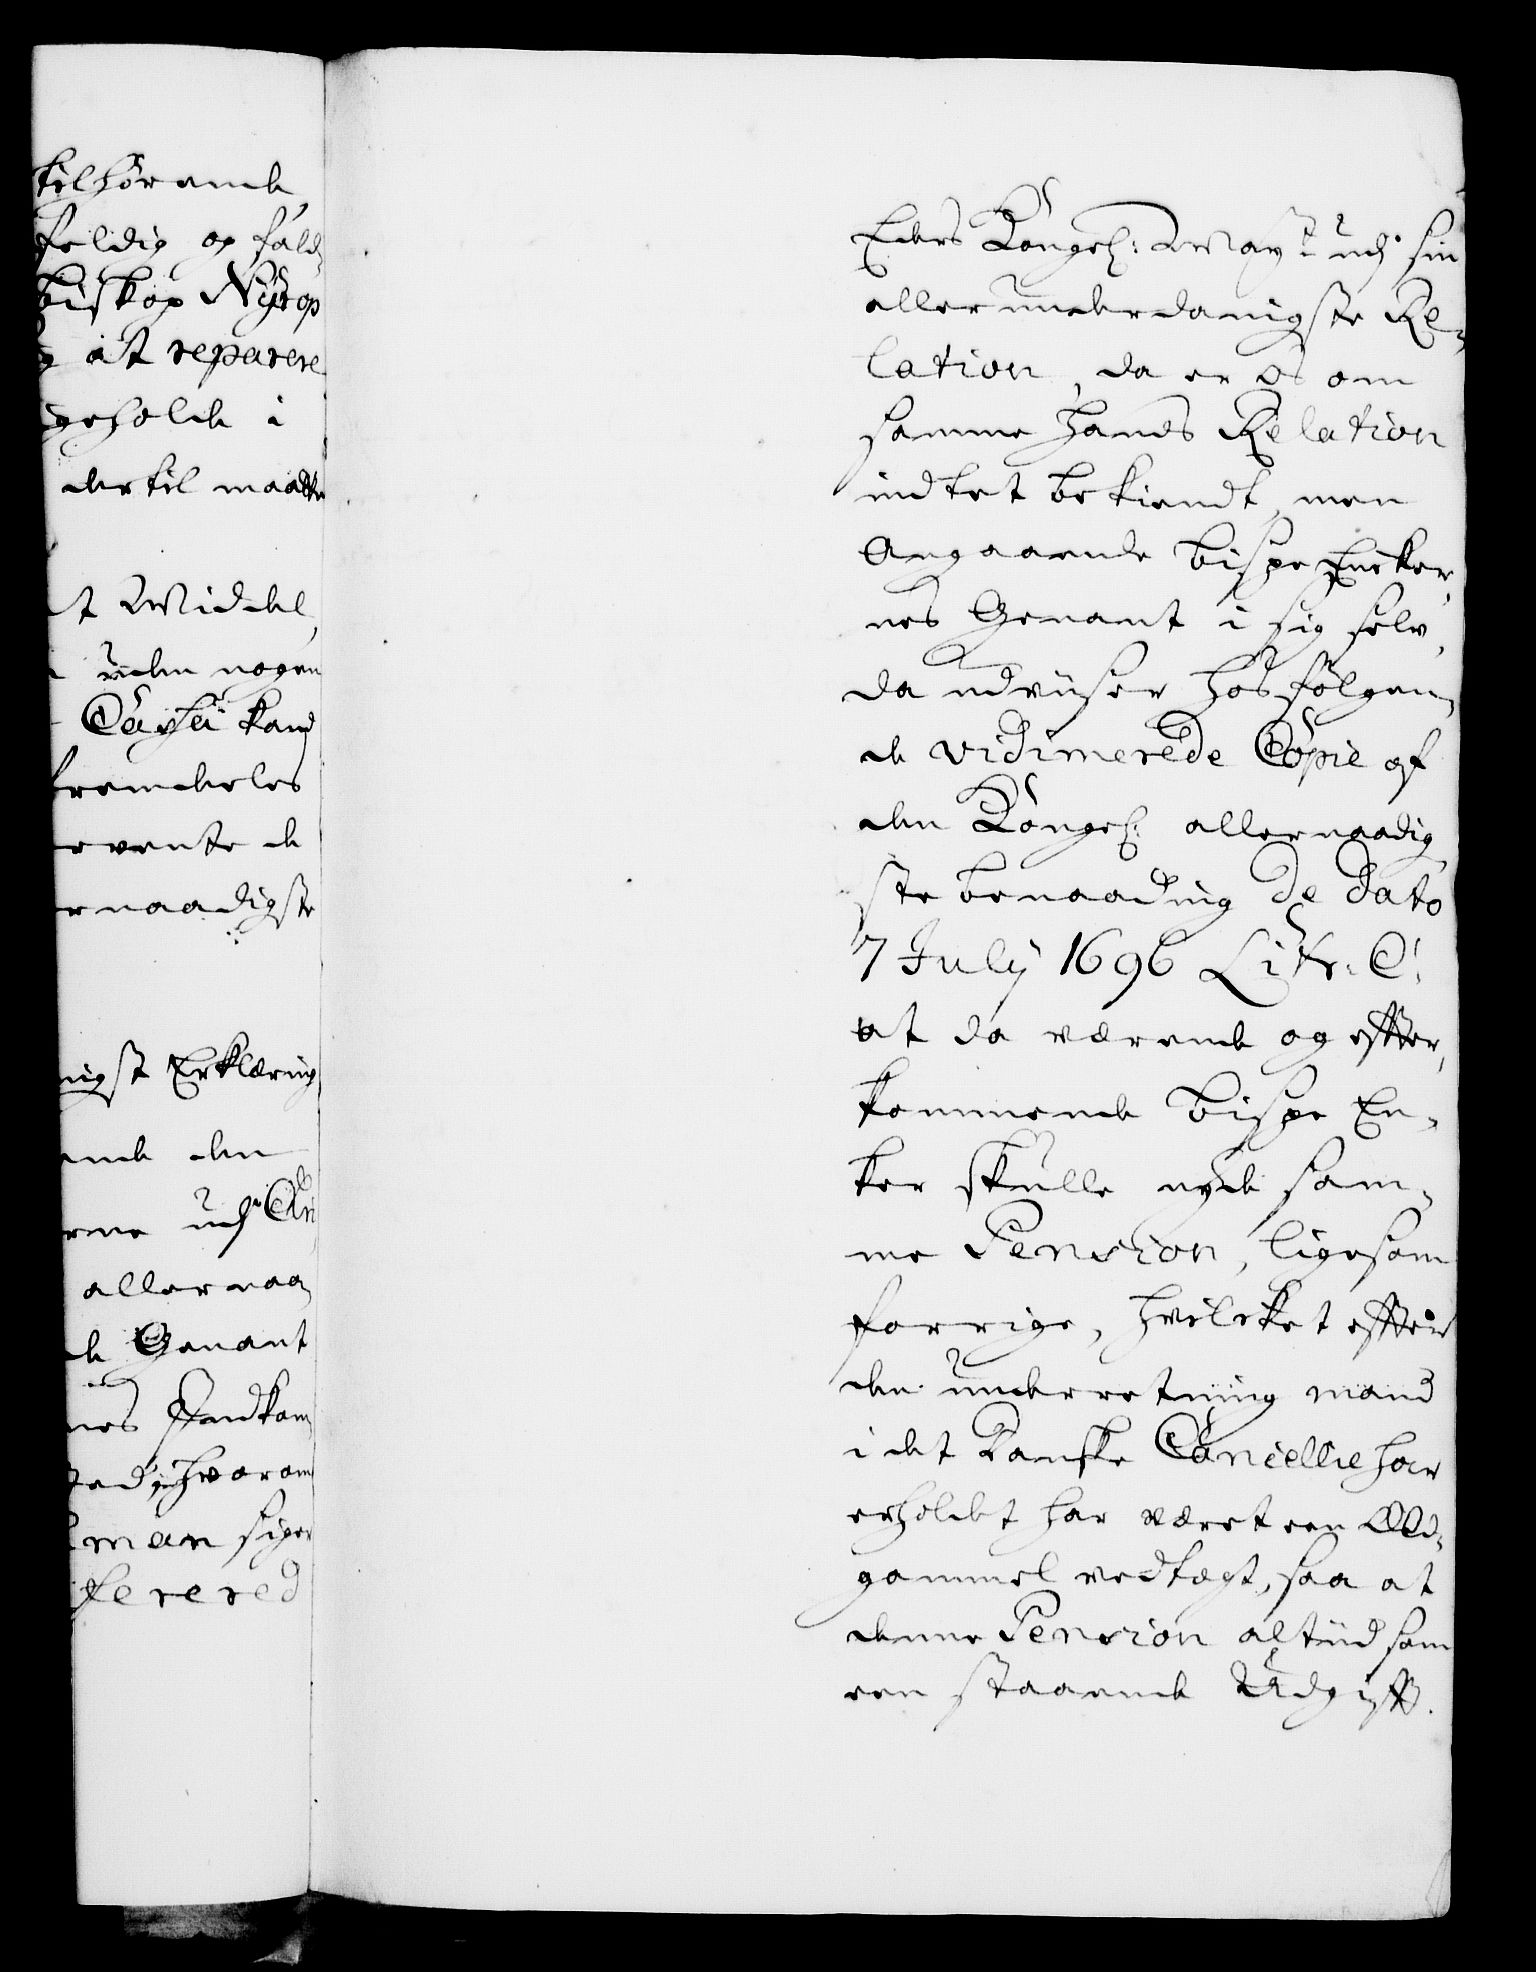 tilhørende
feldig og fald-
biskop Nyrop
at reparere
geholde i
dertil maatte
t Middel
uden nogen
Cassa kand
fremdeles
revente de
rnaadigste
nigst Erklæring
ende den
rne udj
allernaa-
de Genant
nes Indkom-
hvorom
man siger
ferered
Eders Kongel: May.t udj sin
allerunderdanigste Re-
lation, da er os om
samme hands Relation
indtet bekiendt, men
Angaaende bispe Encker-
nes Genamt i sig selv,
da udviiser hosfølgen-
de vidimerede Copie af
den Kongel: allernaadig-
ste benaading de Dato
7 July 1696 Litr: C:
at da værende og effter-
kommende bispe En-
ker skulle nyde sam-
me Pension, ligesom
forrige, hvilcket effter
den underretning mand
i det Danske Cancellie har
erholdet har været een Æld-
gammel vedtægt, saa at
denne Pension altiid som
een staaende Udgifft.